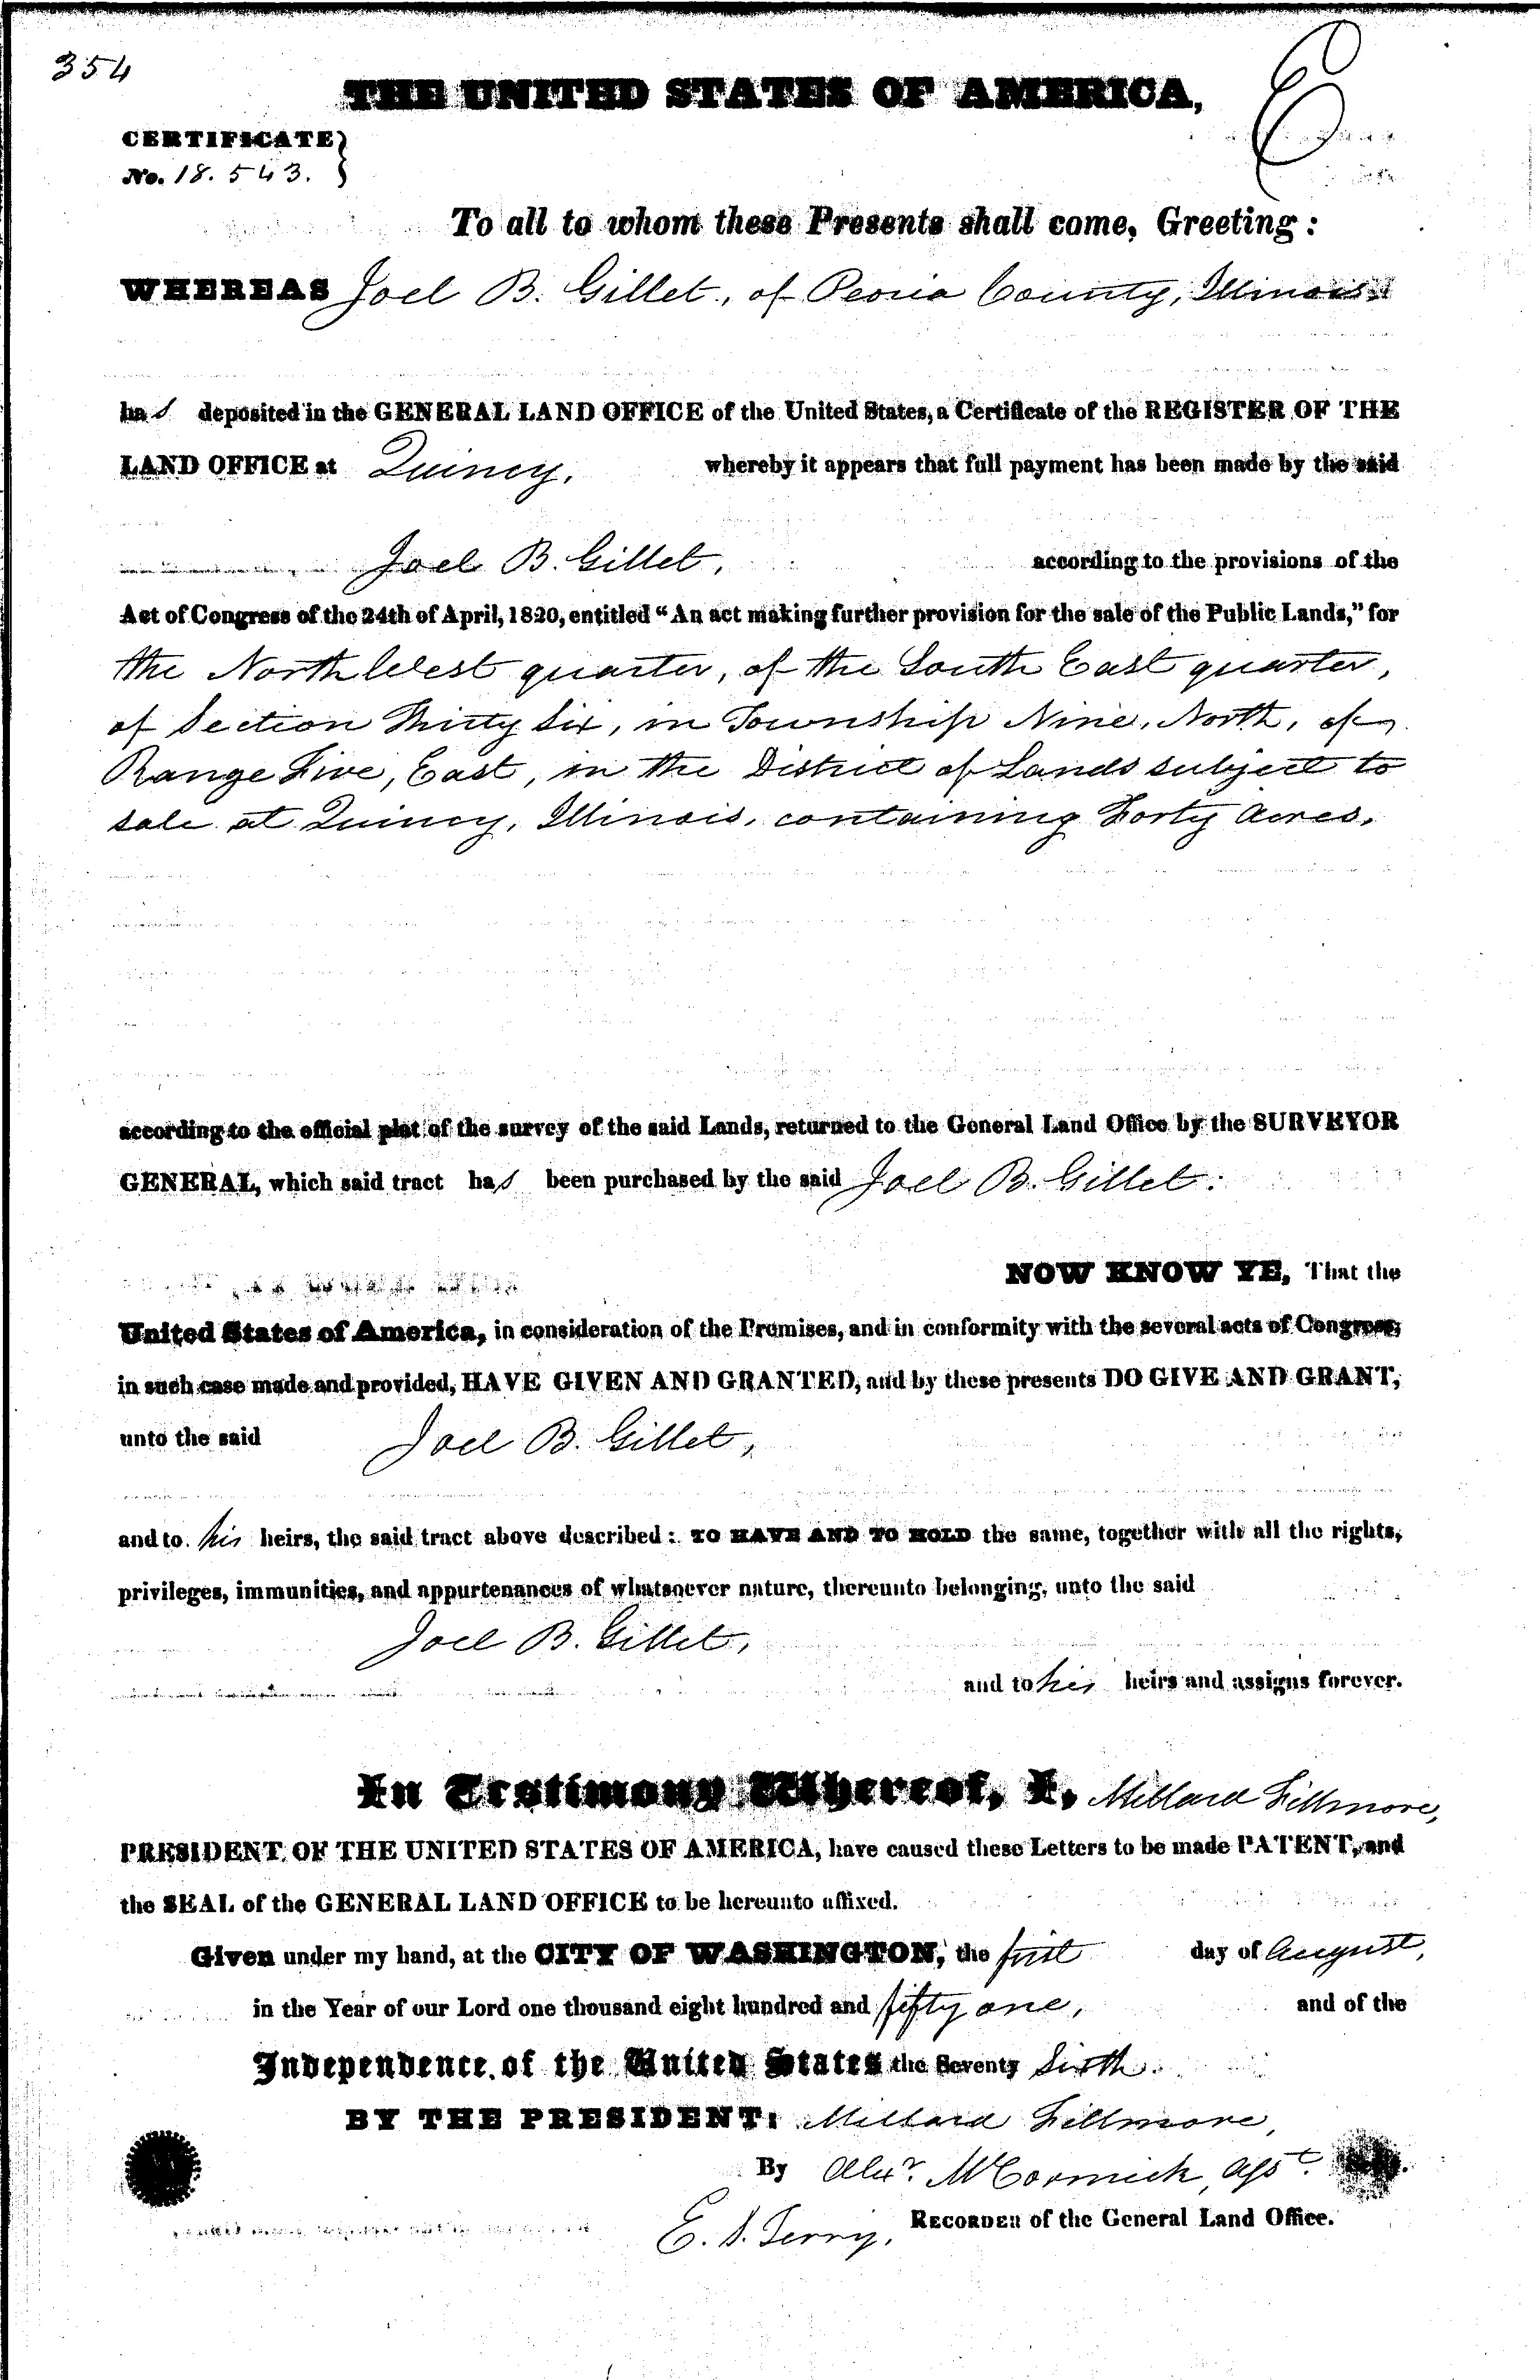 354
THE UNITED STATES OF AMERICA,
E
CERTIFICATE
No. 18.543.
To all to whom these Presents shall come, Greeting:
WHEREAS Joel B. Gillet, of Peoria County, Illinois
has deposited in the GENERAL LAND OFFICE of the United States, a Certificate of the REGISTER OF THE
LAND OFFICE at Quincy, whereby it appears that full payment has been made by the said
Joel B. Gillet, according to the provisions of the
Act of Congress of the 24th of April, 1820, entitled "An act making further provision for the sale of the Public Lands," for
the North West quarter, of the South East quarter,
of Section Thirty Six, in Township Nine, North, of
Range Five, East, in the District of Lands subject to
sale at Quincy, Illinois, containing Forty Acres,
according to the official plat of the survey of the said Lands, returned to the General Land Office by the SURVEYOR
GENERAL, which said tract has been purchased by the said Joel B. Gillet:
NOW KNOW YE, That the
United States of America, in consideration of the Premises, and in conformity with the several acts of Congress,
in such case made and provided, HAVE GIVEN AND GRANTED, and by these presents DO GIVE AND GRANT,
unto the said Joel B. Gillet,
and to his heirs, the said tract above described: TO HAVE AND TO HOLD the same, together with all the rights,
privileges, immunities, and appurtenances of whatsoever nature, thereunto belonging, unto the said
Joel B. Gillet,
and to his heirs and assigns forever.
In Testimony Whereof, I, Millard Fillmore,
PRESIDENT OF THE UNITED STATES OF AMERICA, have caused these Letters to be made PATENT, and
the SEAL of the GENERAL LAND OFFICE to be hereunto affixed.
Given under my hand, at the CITY OF WASHINGTON, the first day of August,
in the Year of our Lord one thousand eight hundred and fifty one, and of the
Independence of the United States the Seventy Sixth.
BY THE PRESIDENT: Millard Fillmore,
By Alexr. McCormick, Asst.
E. S. Terry, RECORDER of the General Land Office.